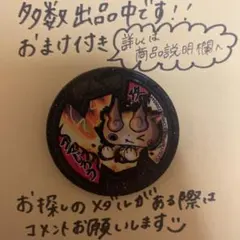 多数出品中です!!
おまけ付き
詳しくは
商品説明欄へ
お探しのメダルがある際は
コメントお願いします